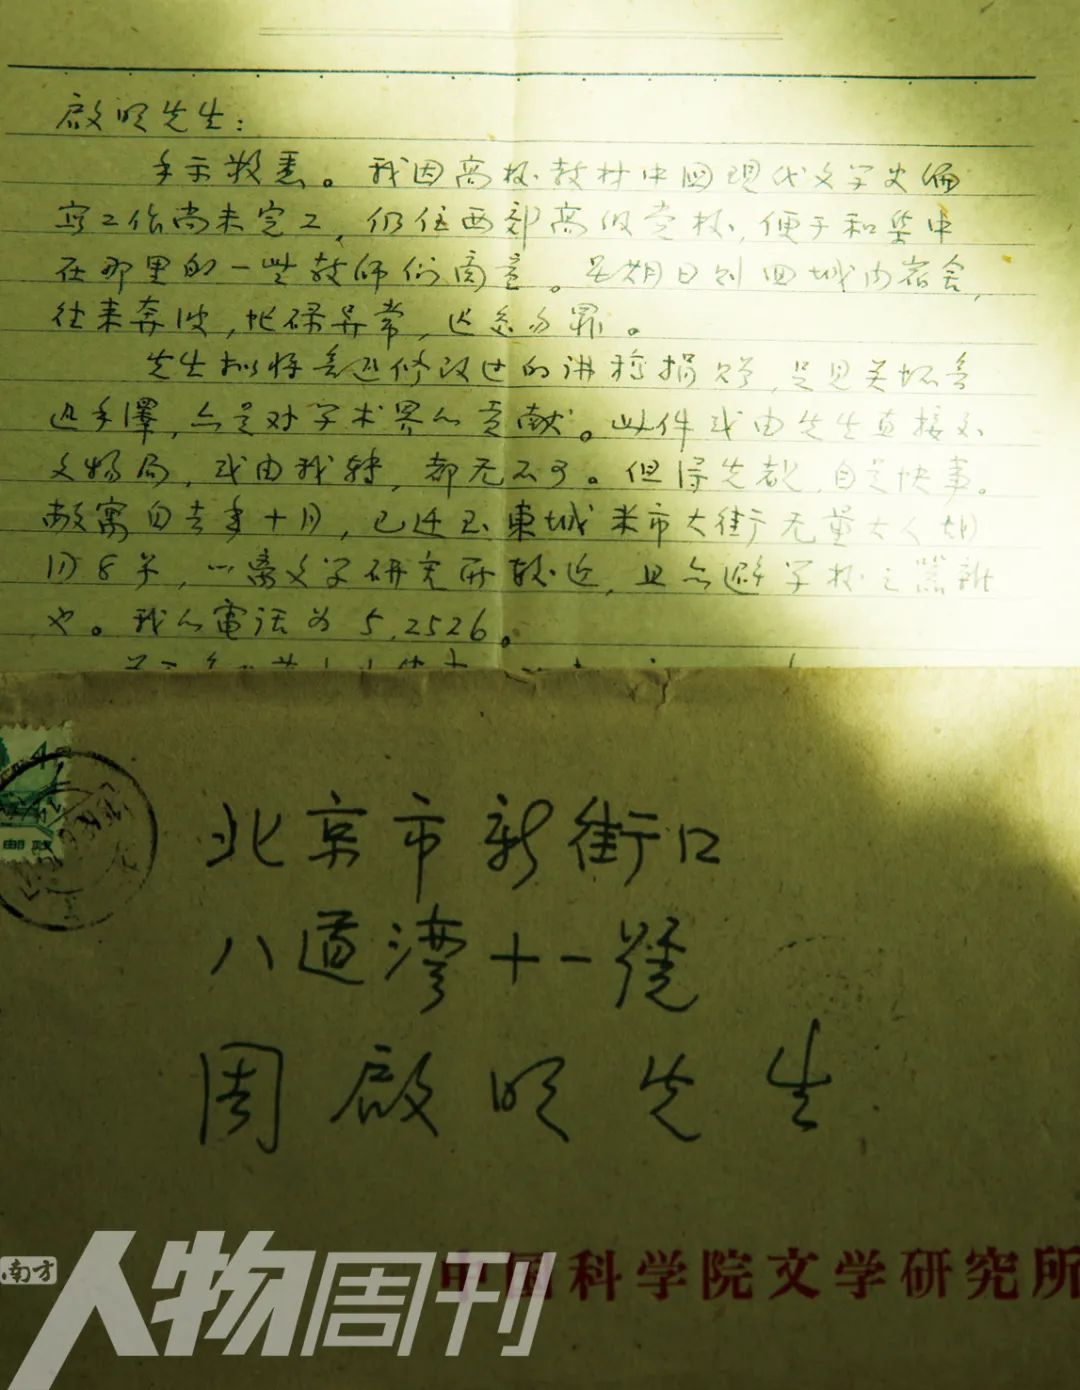 启明先生：
手示敬悉。我因高校教材中国现代文学史编
写工作尚未完工，仍住西郊高级党校，便于和集中
在那里的一些教师们商量。星期日则回城内宿舍，
往来奔波，忙碌异常，迟复为罪。
先生拟将鲁迅修改过的讲稿捐赠，足见关怀鲁
迅手澤，亦是对学术界的贡献。此件或由先生直接交
文物局，或由我转，都无不可。但得先覩，自是快事。
敝寓自去年十月，已迁至東城米市大街无量大人胡
同8号，以离文学研究所较近，且亦避学校之
也。我的電话为5.2526。
4
邮政
北京市新街口
八道湾十一號
周啟明先生
中国科学院文学研究所
南方
人物周刊